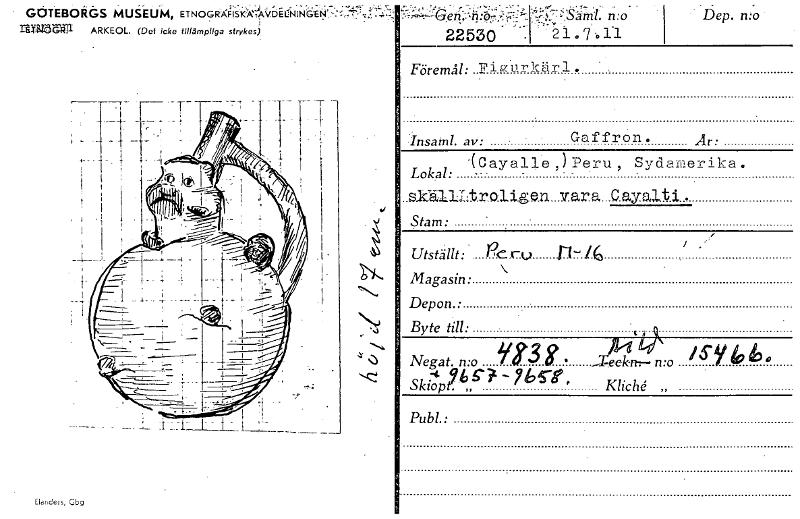 GÖTEBORGS MUSEUM, ETNOGRAFISKA AVDELNINGEN
ETNOGR. ARKEOL. (Det icke tillämpliga strykes)
höjd 17 cm.
Elanders, Gbg
Gen. n:o Saml. n:o Dep. n:o
22530 21.7.11
Föremål: Figurkärl.
Insaml. av: Gaffron. År:
Lokal: (Cayalle,) Peru, Sydamerika.
skall troligen vara Cayalti.
Stam:
Utställt: Peru M-16
Magasin:
Depon.:
Byte till:
Bild
Negat. n:o 4838. Teckn. n:o 15466.
Skiopt. „ 9657-9658. Kliché „
Publ.: